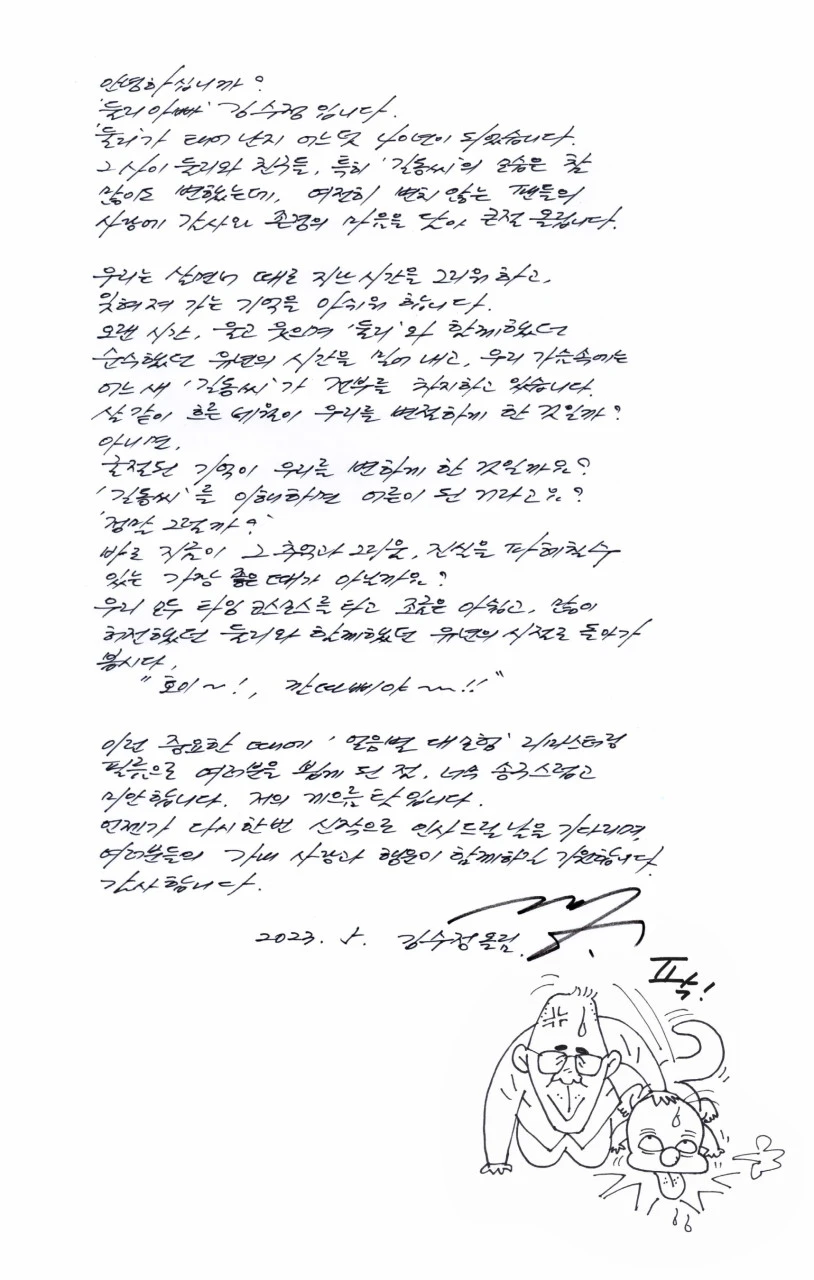 안녕하십니까?
'둘리아빠' 김수정입니다.
'둘리'가 태어난지 어느덧 40년이 되었습니다.
그 사이 둘리와 친구들, 특히 '길동씨'의 모습은 참
많이도 변했는데, 여전히 변치 않는 팬들의
사랑에 감사와 존경의 마음을 담아 큰절 올립니다.
우리는 살면서 때로 지난 시간을 그리워 하고,
잊혀져 가는 기억을 아쉬워 합니다.
오랜 시간, 울고 웃으며 '둘리'와 함께했던
순수했던 유년의 시간을 밀어 내고, 우리 가슴속에는
어느새 '길동씨'가 전부를 차지하고 있습니다.
살같이 흐른 세월이 우리를 변절하게 한 것일까?
아니면,
굴절된 기억이 우리를 변하게 한 것일까요?
'길동씨'를 이해하면 어른이 된 거라고요?
'정말 그럴까?'
바로 지금이 그 추억과 그리움, 진실을 파헤칠 수
있는 가장 좋은 때가 아닐까요?
우리 모두 타임 코스모스를 타고 조금은 아쉽고, 많이
허전했던 둘리와 함께했던 유년의 시절로 돌아가
봅시다.
"호이~!, 깐따삐야~~!!"
이런 중요한 때에 '얼음별 대모험' 리마스터링
필름으로 여러분을 뵙게 된 점, 너무 송구스럽고
미안합니다. 저의 게으름 탓입니다.
언젠가 다시 한번 신작으로 인사드릴 날을 기다리며,
여러분들의 가내 사랑과 행운이 함께하길 기원합니다.
감사합니다.
2023. 5. 김수정 올림.
팍!